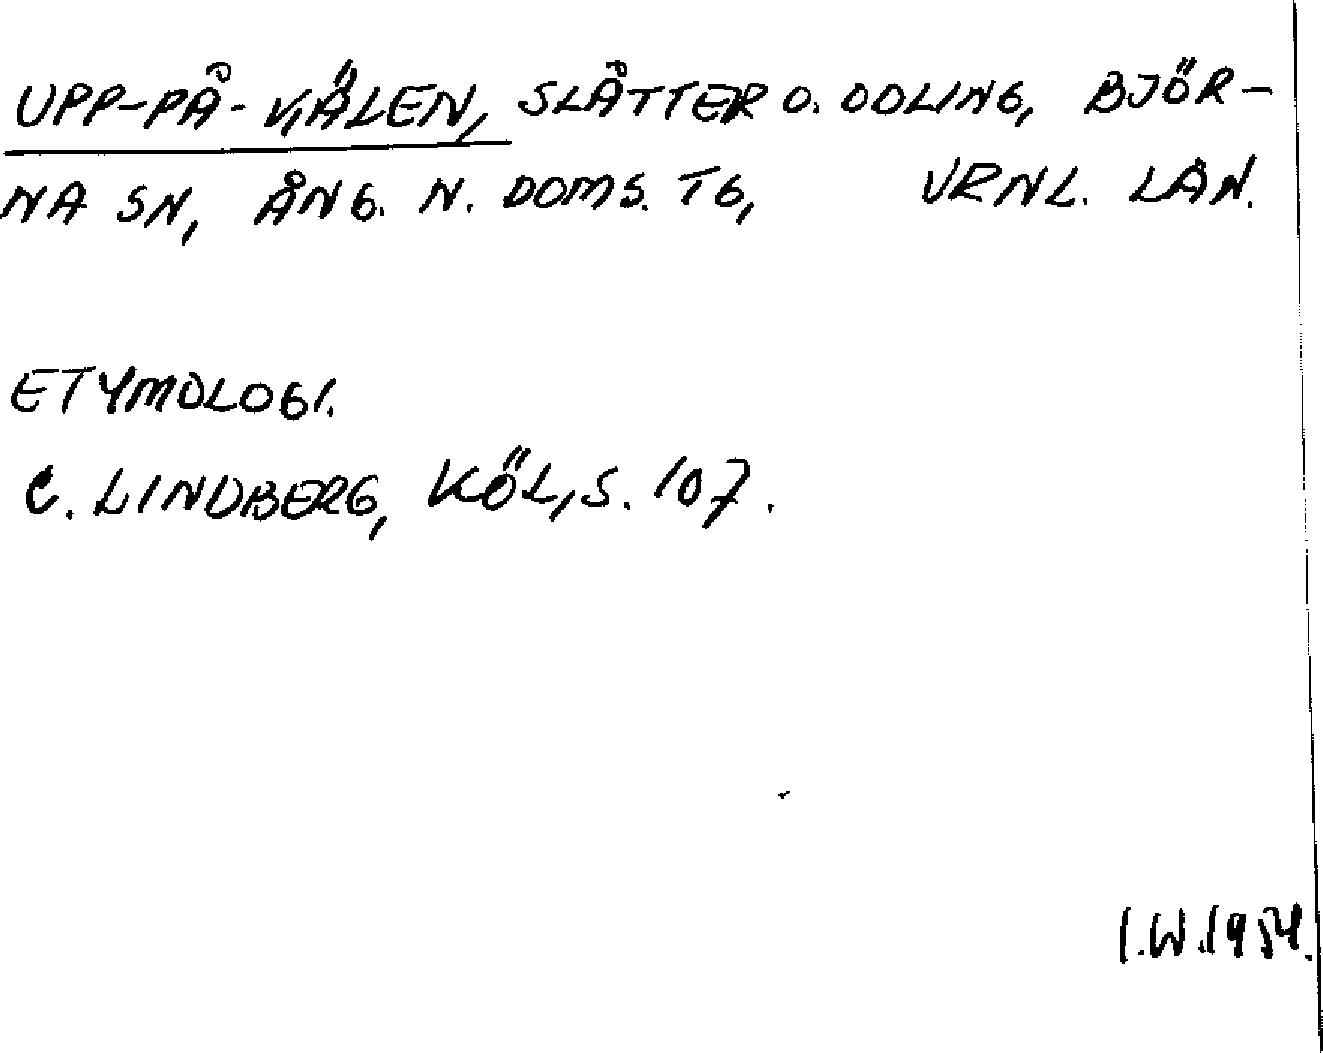 UPP-PÅ-KÄLEN, SLÅTTER O. ODLING, BJÖR-
NA SN, ÅNG. N. DOMS. TG, VRNL. LÄN.
ETYMOLOGI.
C. LINDBERG, KÖL, S. 107.
I.W.1954.